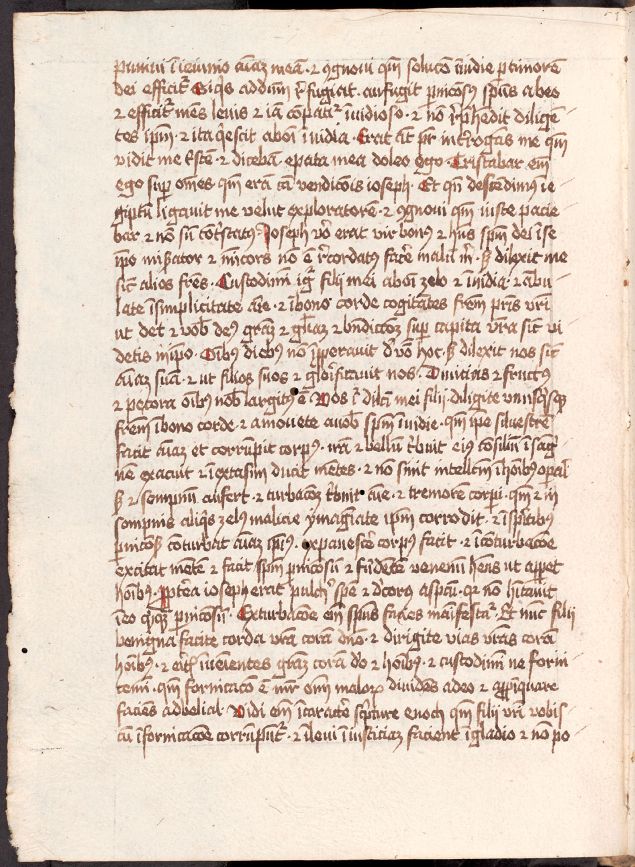 puniui ī ieiunio aīaz meā · ⁊ ꝯgnoui qm̄ solucō īuidie ꝑ timorē
dei efficit᷑ Siqs ad dnm̄ ꝯfugiat · aufugit ꝑnicosꝰ spūs ab eo
⁊ efficit᷑ mēs leuis ⁊ iā cōpatit᷑ inuidioso · ⁊ nō rꝓhēdit diligē
tes ipm̄ · ⁊ ita q̄escit ab oī īuidia · Erat āt pr̄ int̄rogās me qm̄
vidit me t̄ste · ⁊ dicebā epata mea doleo ego · Tristabar em̄
ego suꝑ om̄es · qm̄ erā cā vendicōis ioseph · Et qn̄ descēdimꝰ ī e
giptū ligauit me velut exploratorē · ⁊ ꝯgnoui qm̄ iuste pacie
bar ⁊ nō sū cōt̄statꝰ Joseph v̄o erat vir bonꝰ ⁊ hn̄s spm̄ dei ī se
ipo mis̄ator ⁊ mīcors nō ē r̄cordatꝰ fac̄e malū m̄ · Sꝫ dilexit me
sic̄ alios fr̄es · Custodimī ig᷑ filii mei ab oī zelo ⁊ īuidia · ⁊ ābu
late ī simplicitate aīe · ⁊ ī bono corde cogitātes fr̄em pr̄is vr̄i
ut det ⁊ vob̄ deꝰ grāz ⁊ gl̄iaz ⁊ bn̄dicc̄oz suꝑ capita vr̄a sic̄ vi
detis in ipo · Oībꝰ diebꝰ nō īꝓperauit d̄ v̄o hoc · Sꝫ dilexit nos sic̄
aīaz suā · ⁊ ut filios suos ⁊ gl̄orificauit nos · Diuicias ⁊ fructꝰ
⁊ pecora oībꝰ nob̄ largitꝰ ē Vos ꝯ dil̄ti mei filii · diligite vnusqsqꝫ
fr̄em ī bono corde · ⁊ amouete a uob̄ spm̄ īuidie · qm̄ ipe siluestrē
facit aīaz et corrumpit corpꝰ · irā ⁊ bellū t̄buit eiꝰ cōsiliū ī sāg
nē exacuit ⁊ ī extasim ducit mētes · ⁊ nō sinit intellcm̄ ī hoībꝰ oꝑari
Sꝫ ⁊ sompnū aufert · ⁊ turbacōz t̄buit aīe · ⁊ tremorē corꝑi · qm̄ ⁊ in
sompnis aliqs zelꝰ malicie ymagīate ipm̄ corrodit · ⁊ ī spīritibꝰ
ꝑnicosꝰ cōturbat aīaz ipīꝰ · expauescē corpꝰ facit · ⁊ ī cōturbacōe
excitat mētē ⁊ facit spm̄ ꝑnicosū ⁊ fūdētē venenū hn̄s ut appet
hoībꝰ · Ppt̄ea ioseph erat pulch̄ spē ⁊ d̄corꝰ aspcū · qꝛ nō hītauit
ī eo qcqꝫ ꝑnicosū · Ex turbacōe em̄ spūs facies maīfestat᷑ Et nūc filii
benigna facite corda vr̄a corā dn̄o · ⁊ dirigite vias vr̄as corā
hoībꝰ · ⁊ eritꝭ īuēientes grāz corā dō ⁊ hoībꝰ · ⁊ custodimī ne forni
cemī · qm̄ fornicacō ē mr̄ om̄i maloꝝ diuidēs a deo ⁊ apꝓpīquare
faciēs ad belial · Vidi em̄ ī carac̄te sc̄pture enoch qm̄ filii vr̄i vobis
cū ī fornicacōe corrumpūt᷑ · ⁊ ī leui ī iusticiaz facient ī gladio ⁊ nō po